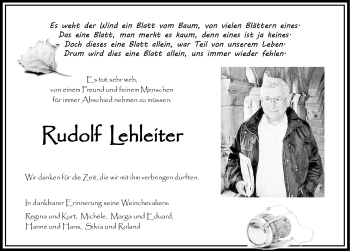 Es weht der Wind ein Blatt vom Baum, von vielen Blättern eines.
Das eine Blatt, man merkt es kaum, denn eines ist ja keines.
Doch dieses eine Blatt allein, war Teil von unserem Leben.
Drum wird dies eine Blatt allein, uns immer wieder fehlen.
Es tut sehr weh,
von einem Freund und feinem Menschen
für immer Abschied nehmen zu müssen.
Rudolf Lehleiter
Wir danken für die Zeit, die wir mit ihm verbringen durften.
In dankbarer Erinnerung seine Weinchevaliers:
Regina und Kurt, Michele, Marga und Eduard,
Hanne und Hans, Silvia und Roland